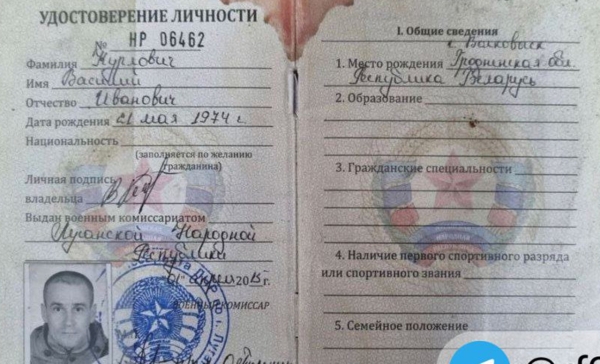 УДОСТОВЕРЕНИЕ ЛИЧНОСТИ
№ НР 06462
Фамилия Курлович
Имя Василий
Отчество Иванович
Дата рождения 21 мая 1974 г.
Национальность
(заполняется по желанию
гражданина)
Личная подпись
владельца
Выдан военным комиссариатом
Луганской Народной
Республики
01 апреля 2015 г.
ВОЕННЫЙ КОМИССАР
I. Общие сведения
г. Волковыск
1. Место рождения Гродненская обл.
Республика Беларусь
2. Образование
3. Гражданские специальности
4. Наличие первого спортивного разряда
или спортивного звания
5. Семейное положение